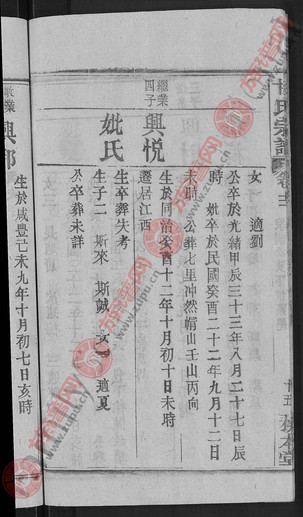 氏宗譜
卷十二
十五
女一　適劉
公卒於光緒甲辰三十三年八月二十七日辰
時　妣卒於民國癸酉二十二年九月十二日
未時　公葬七里冲然帽山壬山丙向
繼業四子
興悅
生於同治癸酉十二年十月初十日未時
遷居江西
妣氏
生卒葬失考
生子二　斯來　斯誠　女一　適夏
公卒葬未詳
業
興
生於咸豐己未九年十月初七日亥時